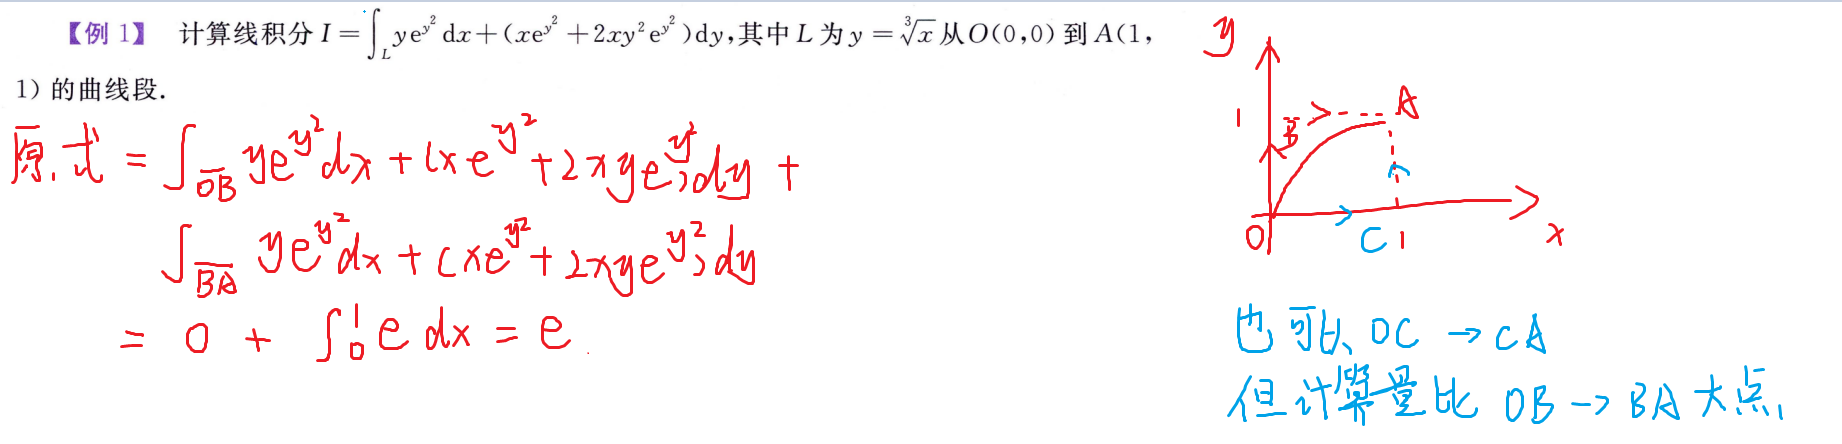 【例 1】 计算线积分 I = ∫_L ye^{y²} dx + (xe^{y²} + 2xy²e^{y²})dy,其中 L 为 y = ∛x 从 O(0,0) 到 A(1,
1) 的曲线段.
原式 = ∫_{OB} ye^{y²}dx + (xe^{y²} + 2xye^{y²})dy +
∫_{BA} ye^{y²}dx + (xe^{y²} + 2xye^{y²})dy
= 0 + ∫₀¹ e dx = e.
y
1
B
A
O
C 1
x
也可以 OC → CA
但计算量比 OB → BA 大点,